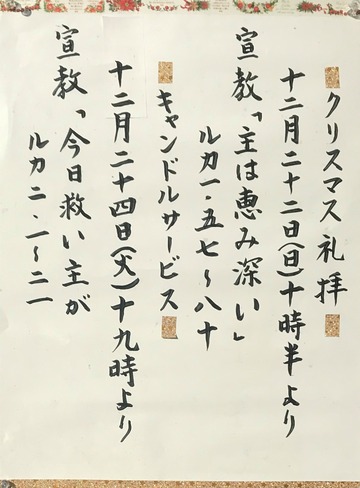 クリスマス礼拝
十二月二十二日(日)十時半より
宣教「主は恵み深い」
ルカ一・五七~八十
キャンドルサービス
十二月二十四日(火)十九時より
宣教「今日救い主が
ルカ二・一~二一